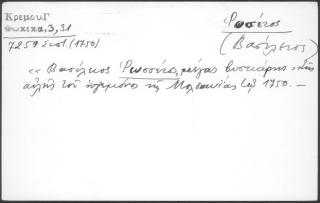 Κρεμου Γ
Φωκικα, 3, 31
7259 Σκπτ. (1750)
Ῥωσέτος
(Βασίλειος)
« Βασίλειος Ῥωσσέτος, μέγας βισκάρης τῆς
αὐλῆς τοῦ ἡγεμόνος τῆς Μολδαυΐας 1750. —